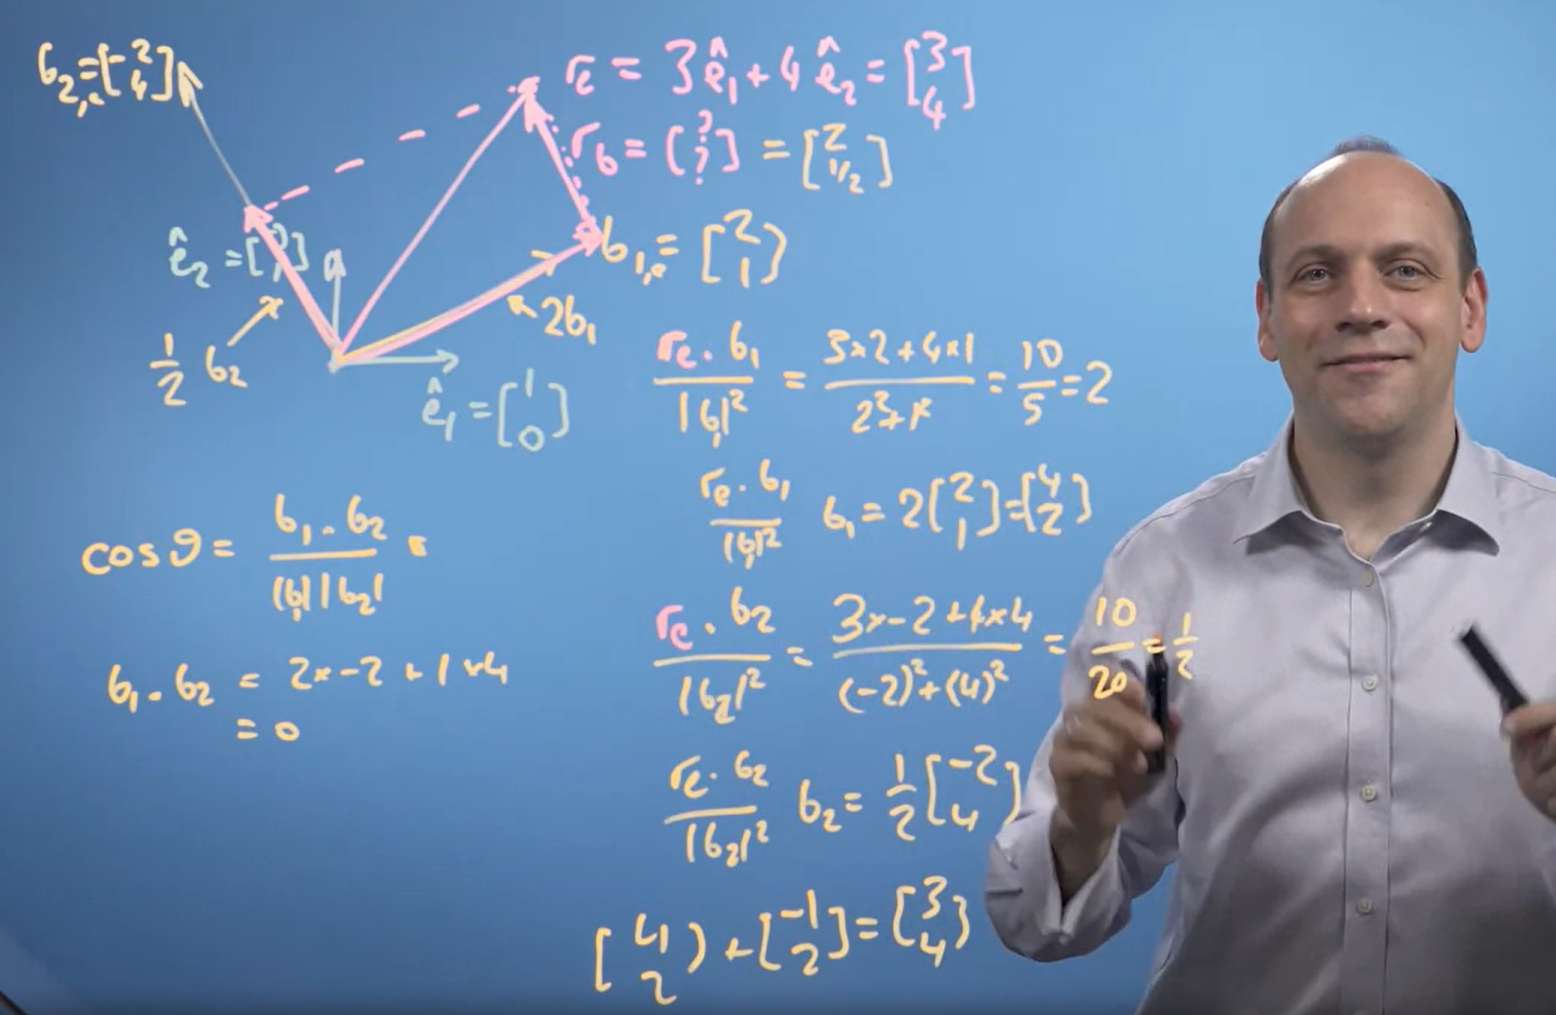 b₂,ₑ = [-2 4]
rₑ = 3ê₁ + 4ê₂ = [3 4]
r_b = [? ?] = [2 1/2]
ê₂ = [0 1]
b₁,ₑ = [2 1]
2b₁
1/2 b₂
ê₁ = [1 0]
rₑ . b₁ / |b₁|² = 3×2 + 4×1 / 2² + 1² = 10/5 = 2
rₑ . b₁ / |b₁|² b₁ = 2 [2 1] = [4 2]
cos θ = b₁ . b₂ / |b₁| |b₂| =
rₑ . b₂ / |b₂|² = 3×-2 + 4×4 / (-2)² + (4)² = 10/20 = 1/2
b₁ . b₂ = 2×-2 + 1×4
= 0
rₑ . b₂ / |b₂|² b₂ = 1/2 [-2 4]
[4 2] + [-1 2] = [3 4]